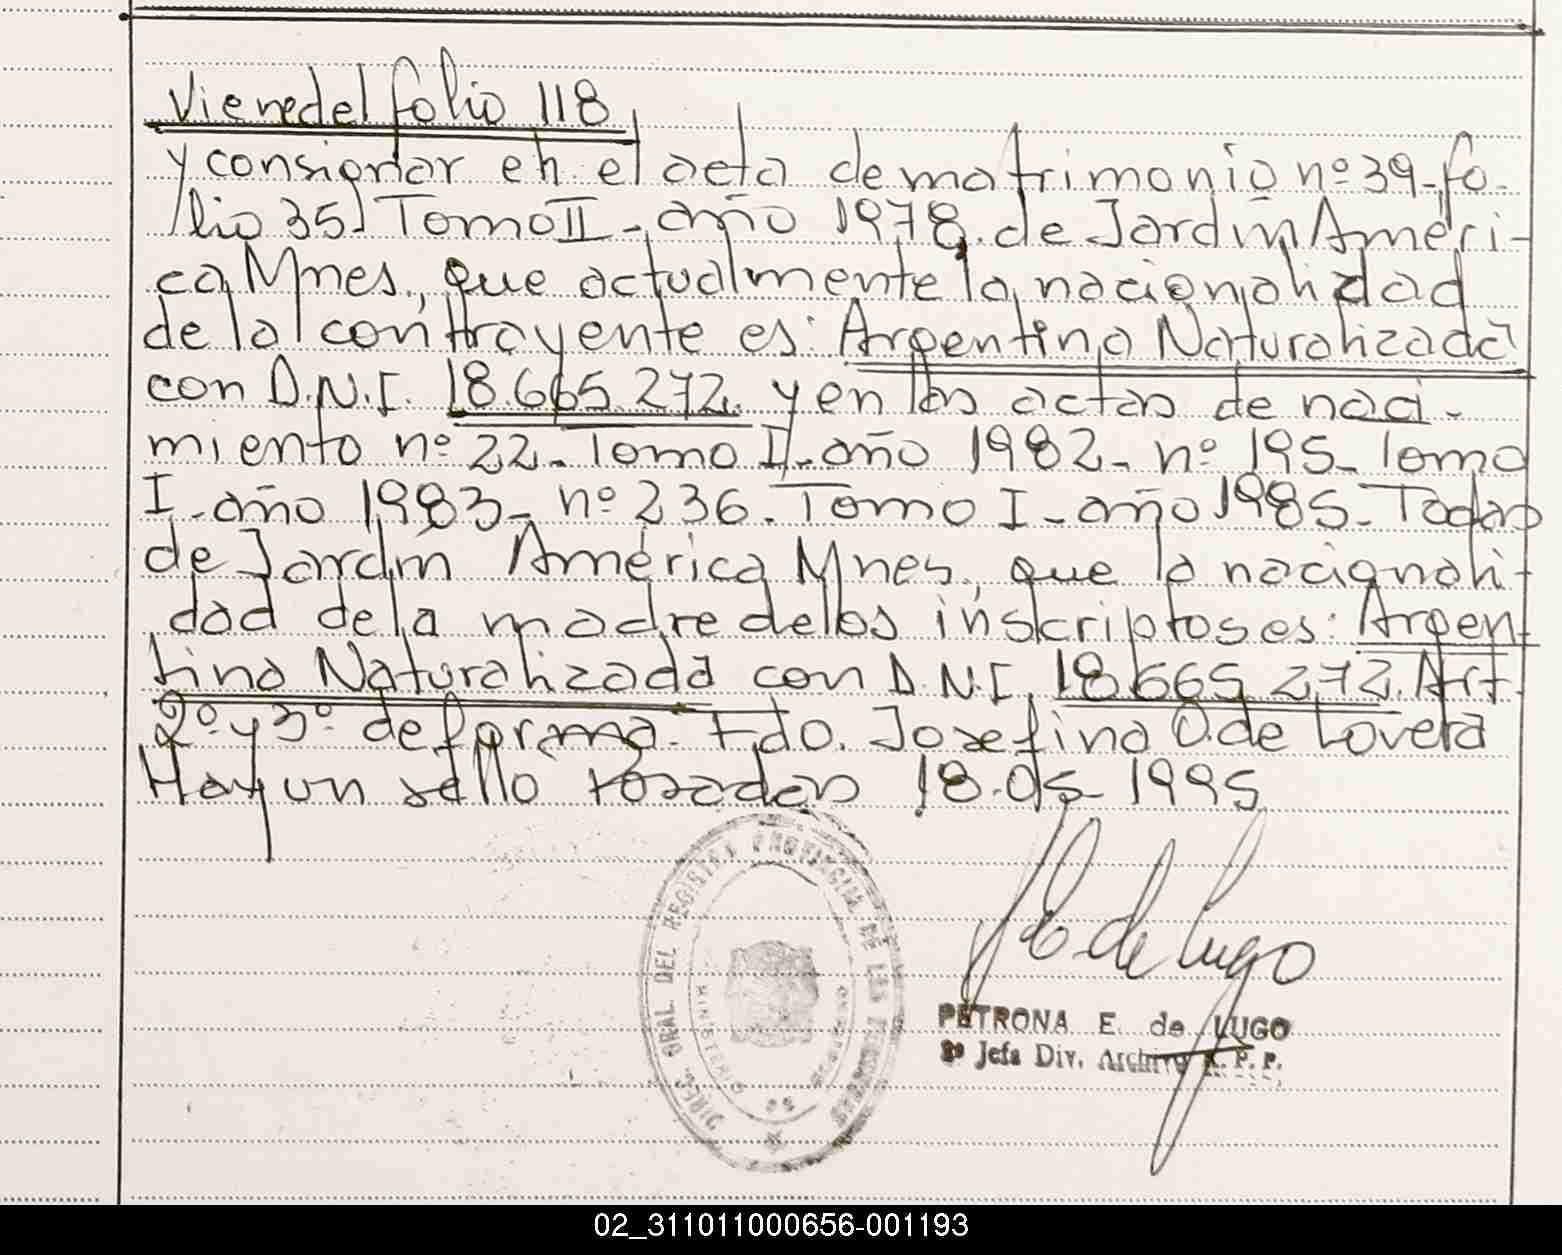 Viene del folio 118
y consignar en el acta de matrimonio nº 39-fo-
lio 35-Tomo II-año 1978. de Jardin Améri-
ca Mnes., que actualmente la nacionalidad
de la contrayente es: Argentina Naturalizada
con D.N.I. 18.665.272. y en las actas de naci-
miento nº 22-Tomo I-año 1982-nº 195-Tomo
I-año 1983-nº 236. Tomo I-año 1985-Todas
de Jardin América Mnes., que la nacionali-
dad de la madre de los inskriptos es: Argen-
tina Naturalizada con D.N.I. 18.665.272. Art.
2º y 3º de forma. Fdo. Josefina O. de Lovera
Hay un sello Posadas 18-05-1995
DIREC. GRAL. DEL REGISTRO PROVINCIAL DE LAS PERSONAS
MINISTERIO
GOBIERNO
de Lugo
PETRONA E. de LUGO
2º Jefa Div. Archivo R. P. P.
02_311011000656-001193